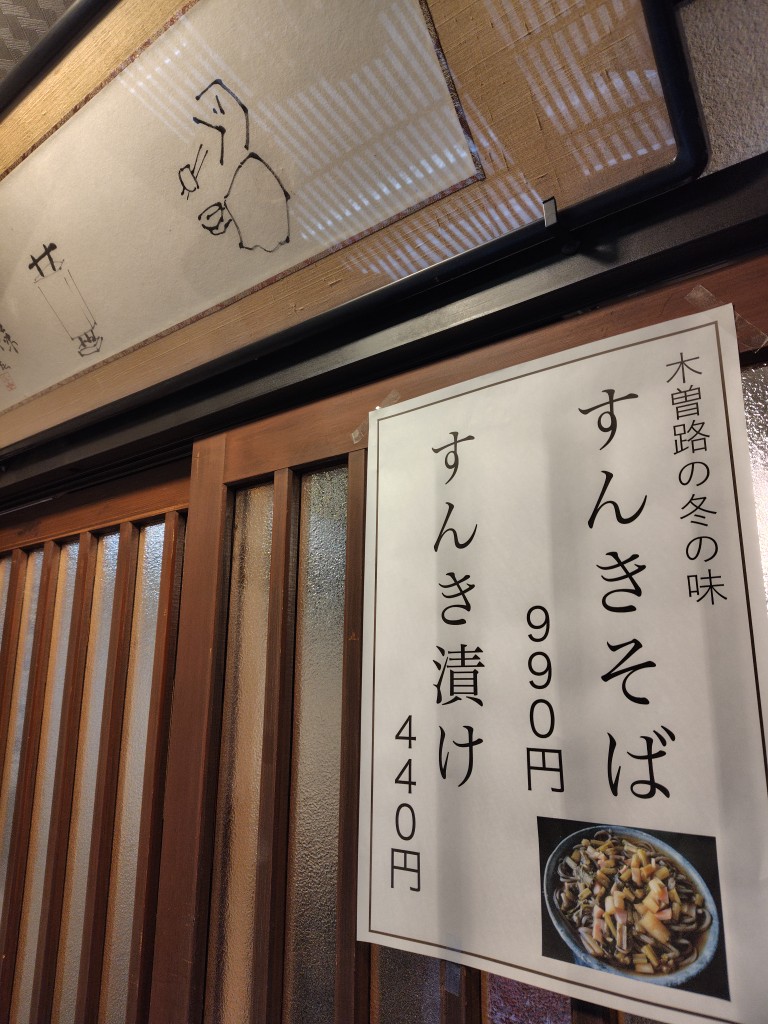 木曽路の冬の味
すんきそば
990円
すんき漬け
440円